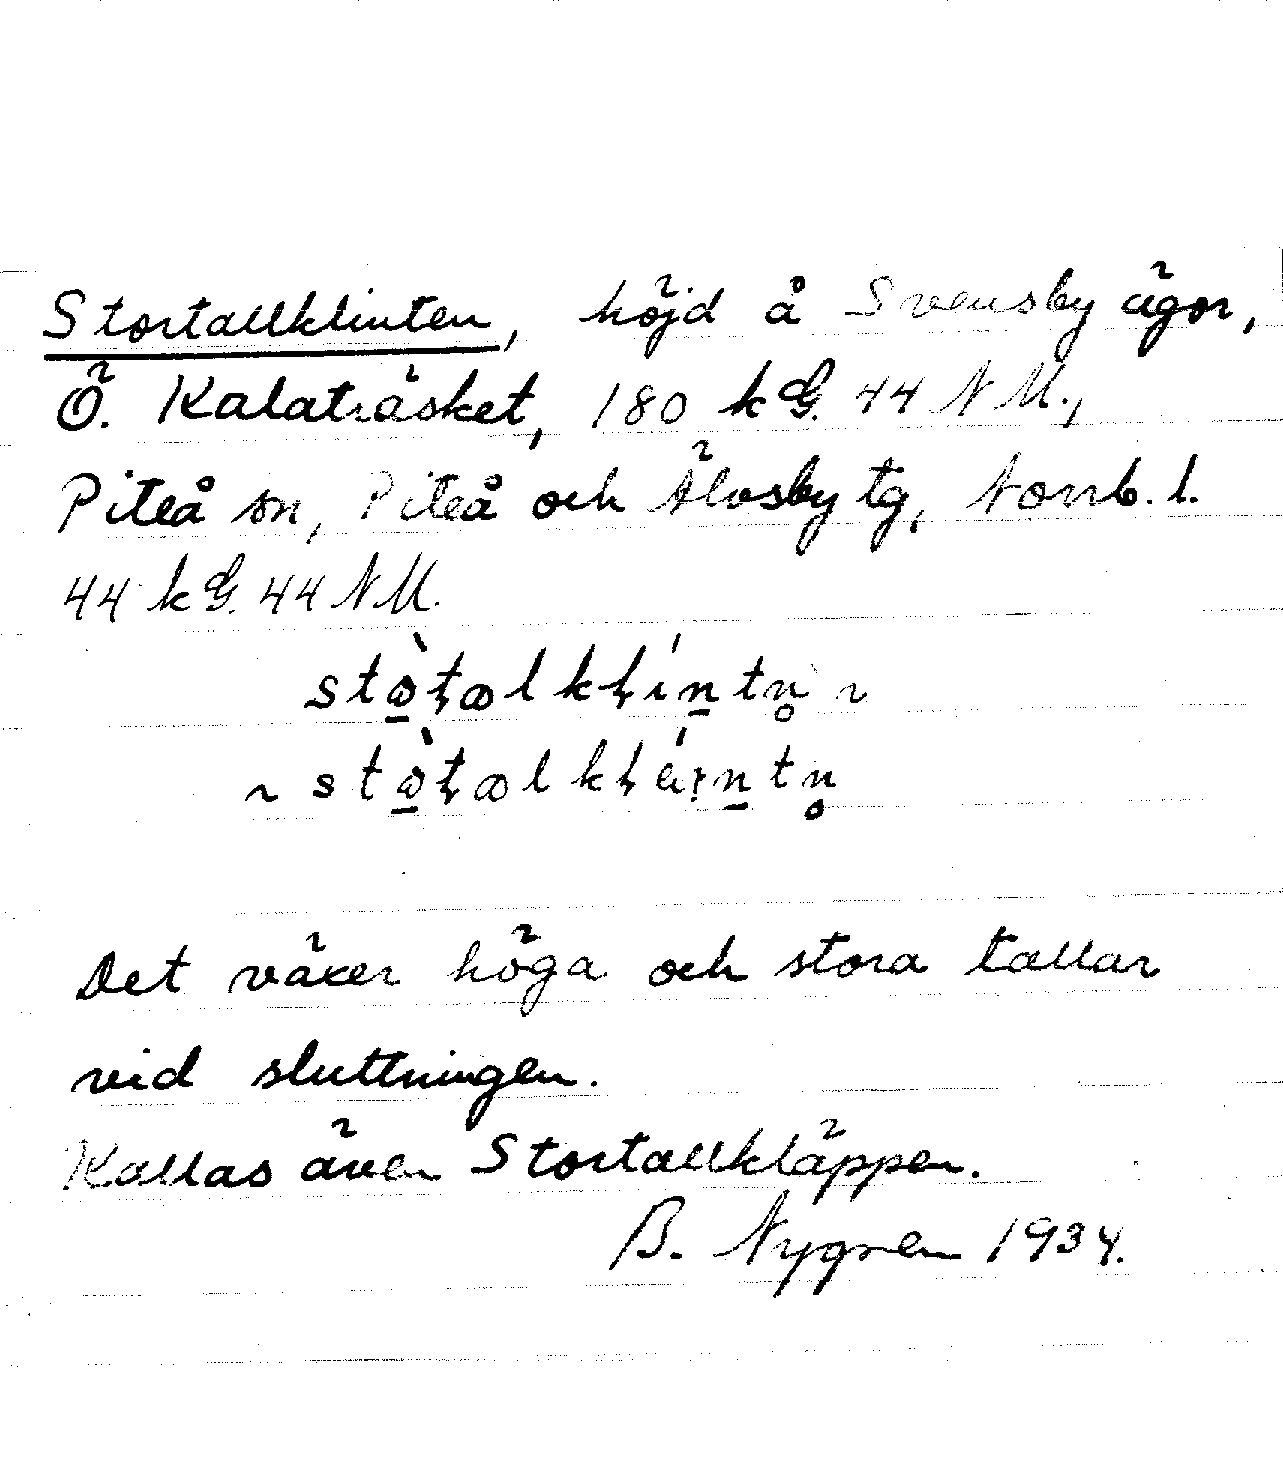 Stortallklinten, höjd å Svensby ägor,
Ö. Kalaträsket, 180 kG. 44 NM.,
Piteå sn, Piteå och Älvsby tg, Norrb. l.
44 kG. 44 NM.
Det växer höga och stora tallar
vid sluttningen.
Kallas även Stortallkläppen.
B. Nygren 1934.